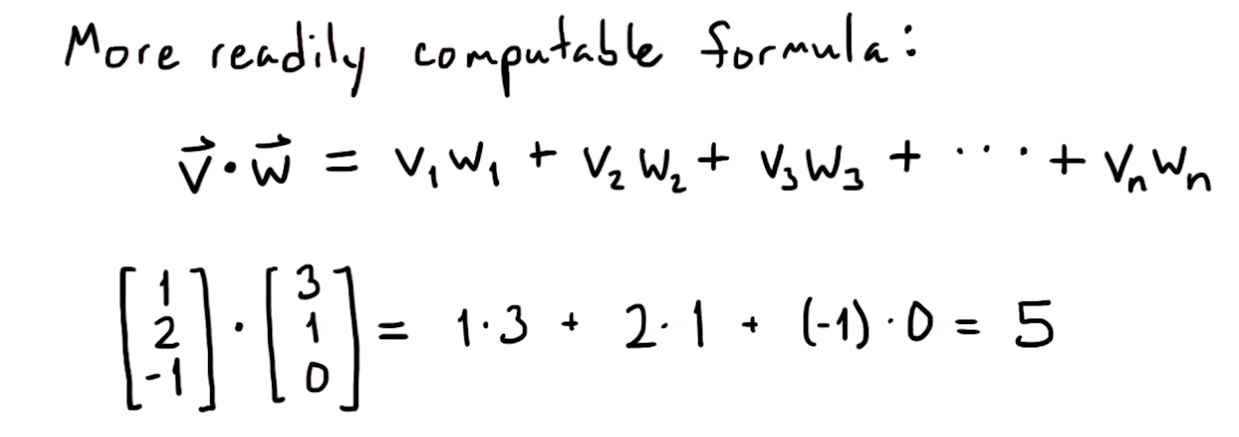 More readily computable formula:
v⃗ · w⃗ = v₁w₁ + v₂w₂ + v₃w₃ + ··· + vₙwₙ
[1 2 -1] · [3 1 0] = 1·3 + 2·1 + (-1)·0 = 5